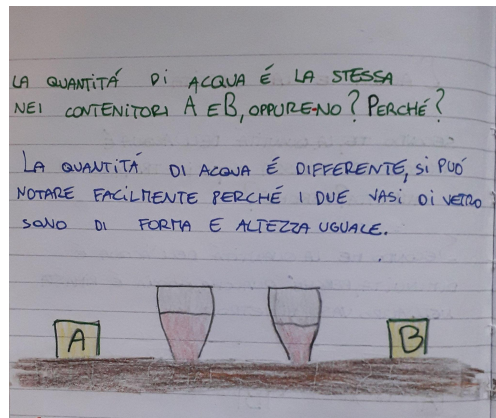 LA QUANTITÁ DI ACQUA É LA STESSA
NEI CONTENITORI A E B, OPPURE NO? PERCHÉ?
LA QUANTITÁ DI ACQUA É DIFFERENTE, SI PUÓ
NOTARE FACILMENTE PERCHÉ I DUE VASI DI VETRO
SONO DI FORMA E ALTEZZA UGUALE.
A B